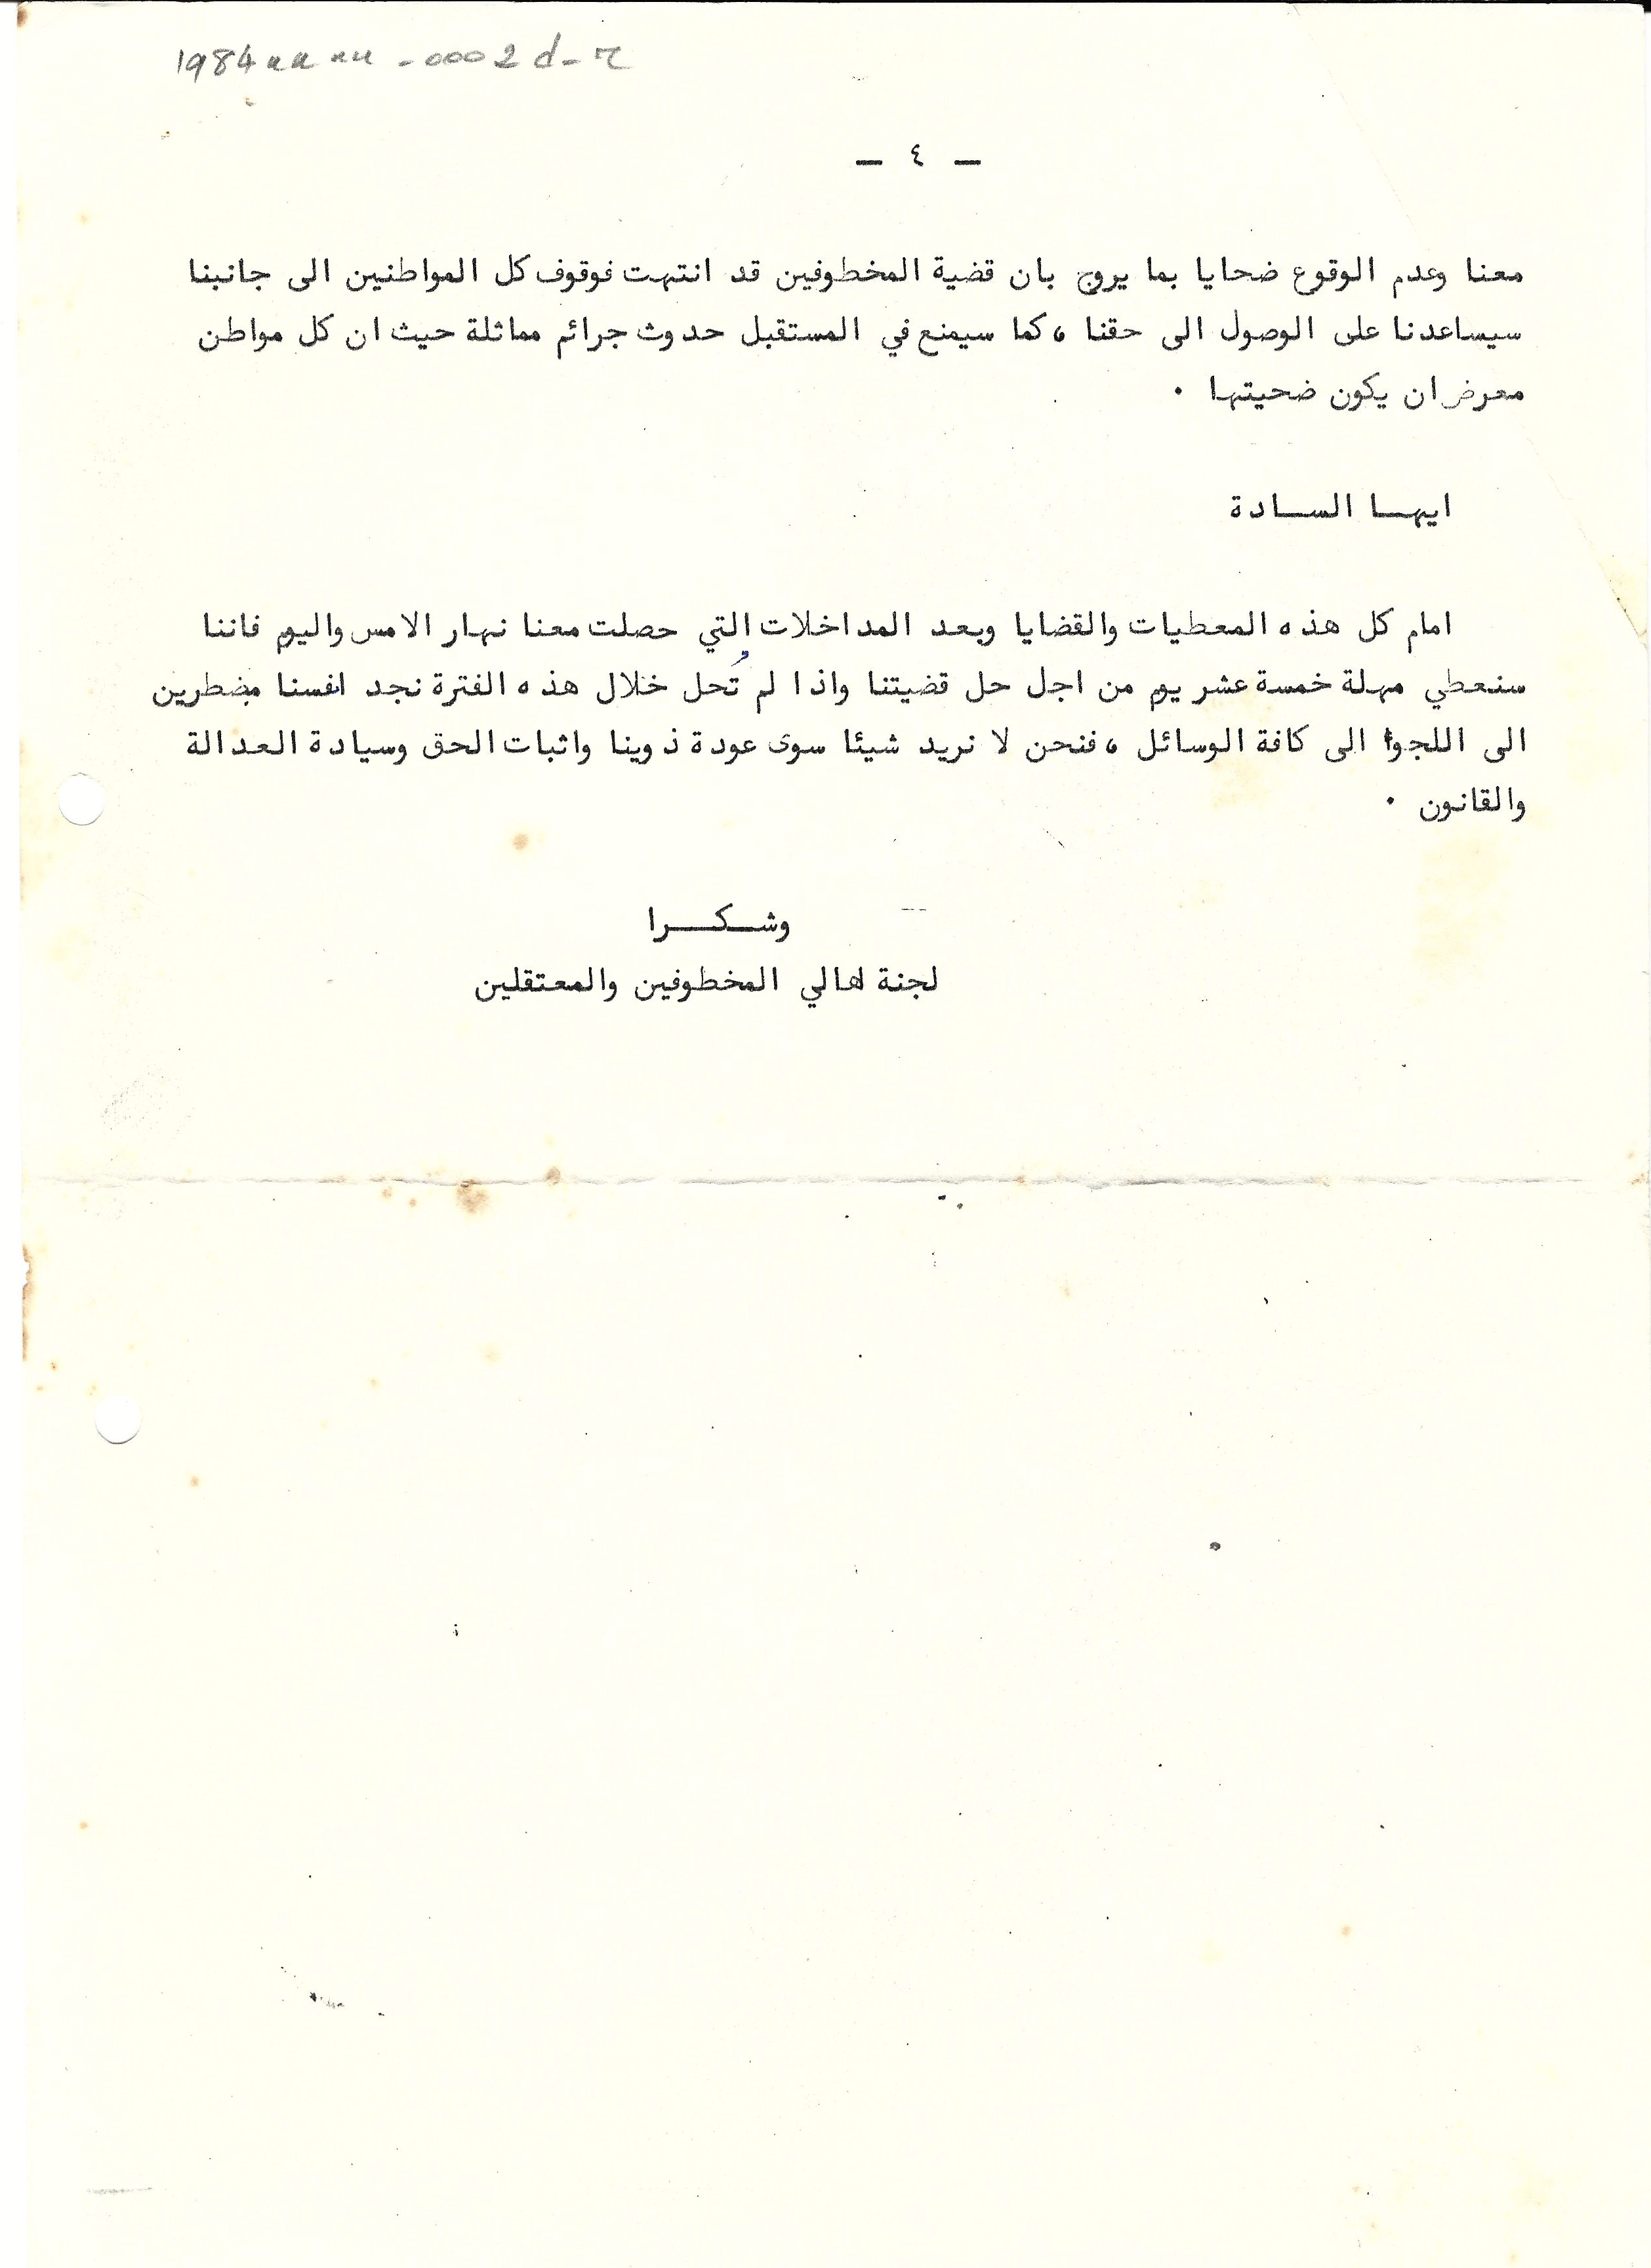 1984xxxx-0002d-r
- ٤ -
معنا وعدم الوقوع ضحايا بما يروج بان قضية المخطوفين قد انتهت فوقوف كل المواطنين الى جانبنا
سيساعدنا على الوصول الى حقنا ، كما سيمنع في المستقبل حدوث جرائم مماثلة حيث ان كل مواطن
معرض ان يكون ضحيتها .
ايهـا السـادة
امام كل هذه المعطيات والقضايا وبعد المداخلات التي حصلت معنا نهار الامس واليوم فاننا
سنعطي مهلة خمسة عشر يوم من اجل حل قضيتنا واذا لم تُحل خلال هذه الفترة نجد انفسنا مضطرين
الى اللجوأ الى كافة الوسائل ، فنحن لا نريد شيئا سوى عودة ذوينا واثبات الحق وسيادة العدالة
والقانون .
وشـكـرا
لجنة اهالي المخطوفين والمعتقلين